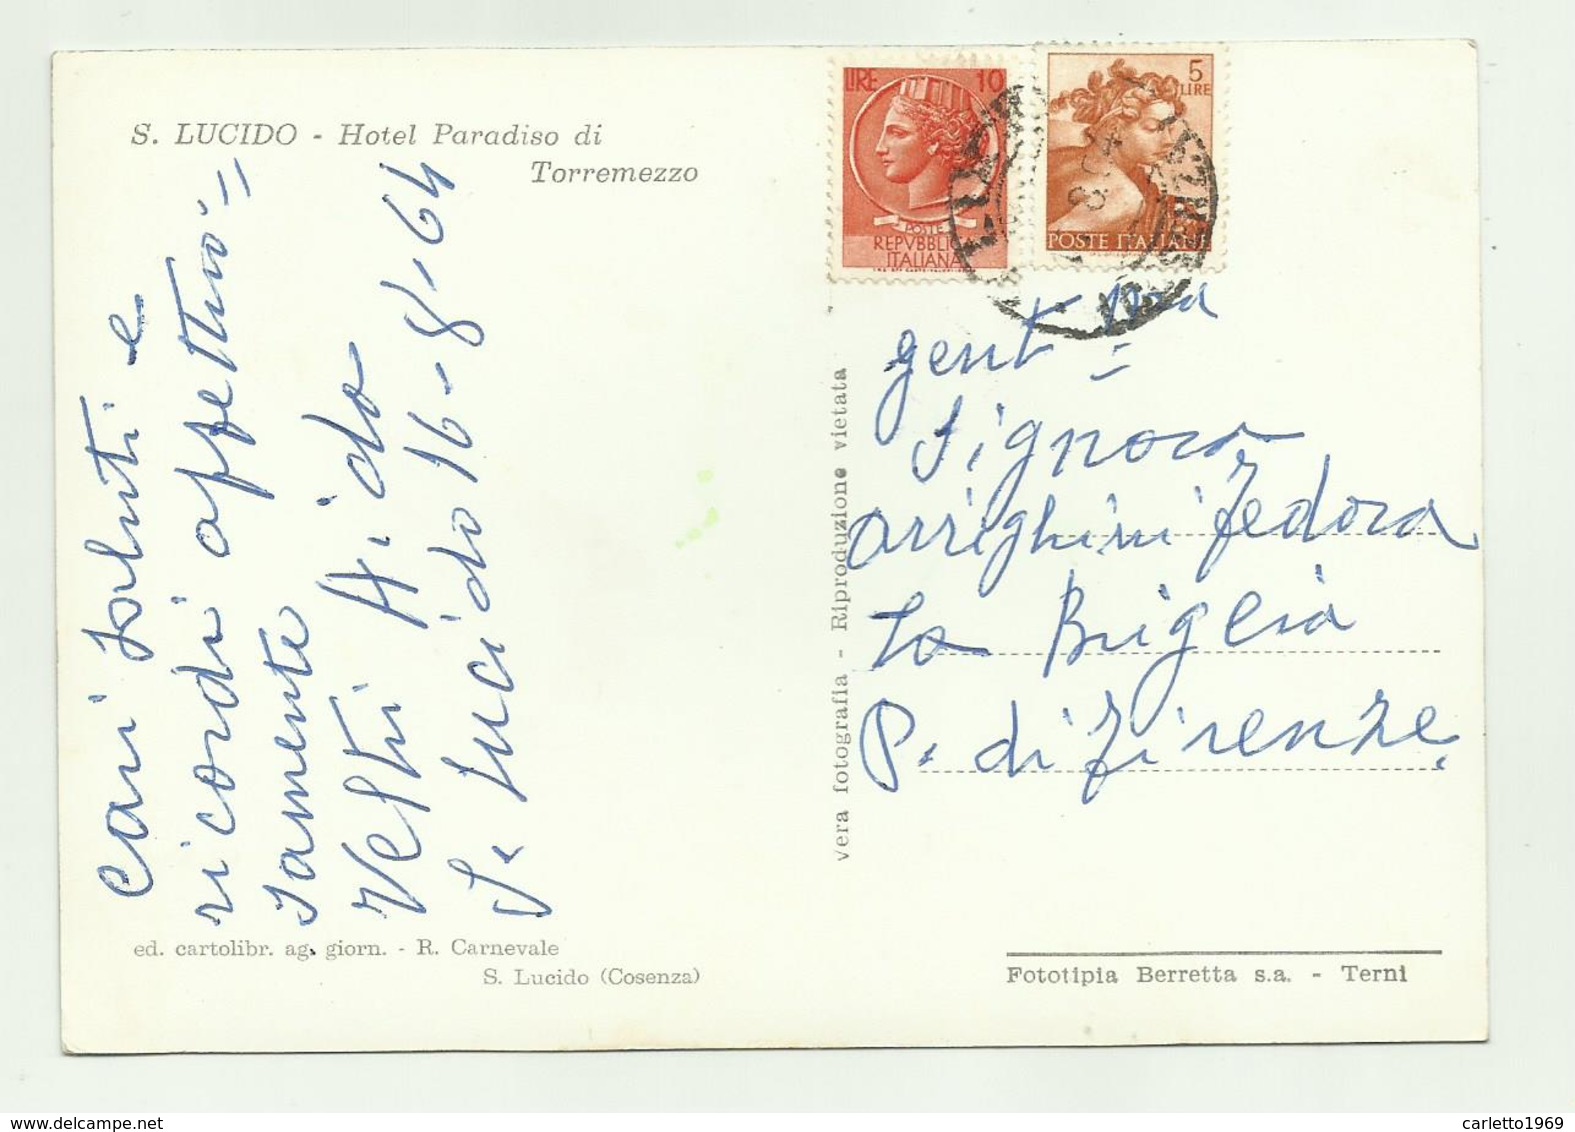 S. LUCIDO - Hotel Paradiso di
Torremezzo
Cari saluti e
ricordi affettuo=
samente
Vestri Aido
S. Lucido 16-8-64
ed. cartolibr. ag. giorn. - R. Carnevale
S. Lucido (Cosenza)
vera fotografia - Riproduzione vietata
LIRE 10
POSTE
REPVBBLICA
ITALIANA
5
LIRE
POSTE ITALIANE
gent ma
Signora
Arrighini Fedora
La Briglia
P. di Firenze.
Fototipia Berretta s.a. - Terni
www.delcampe.net
carletto1969